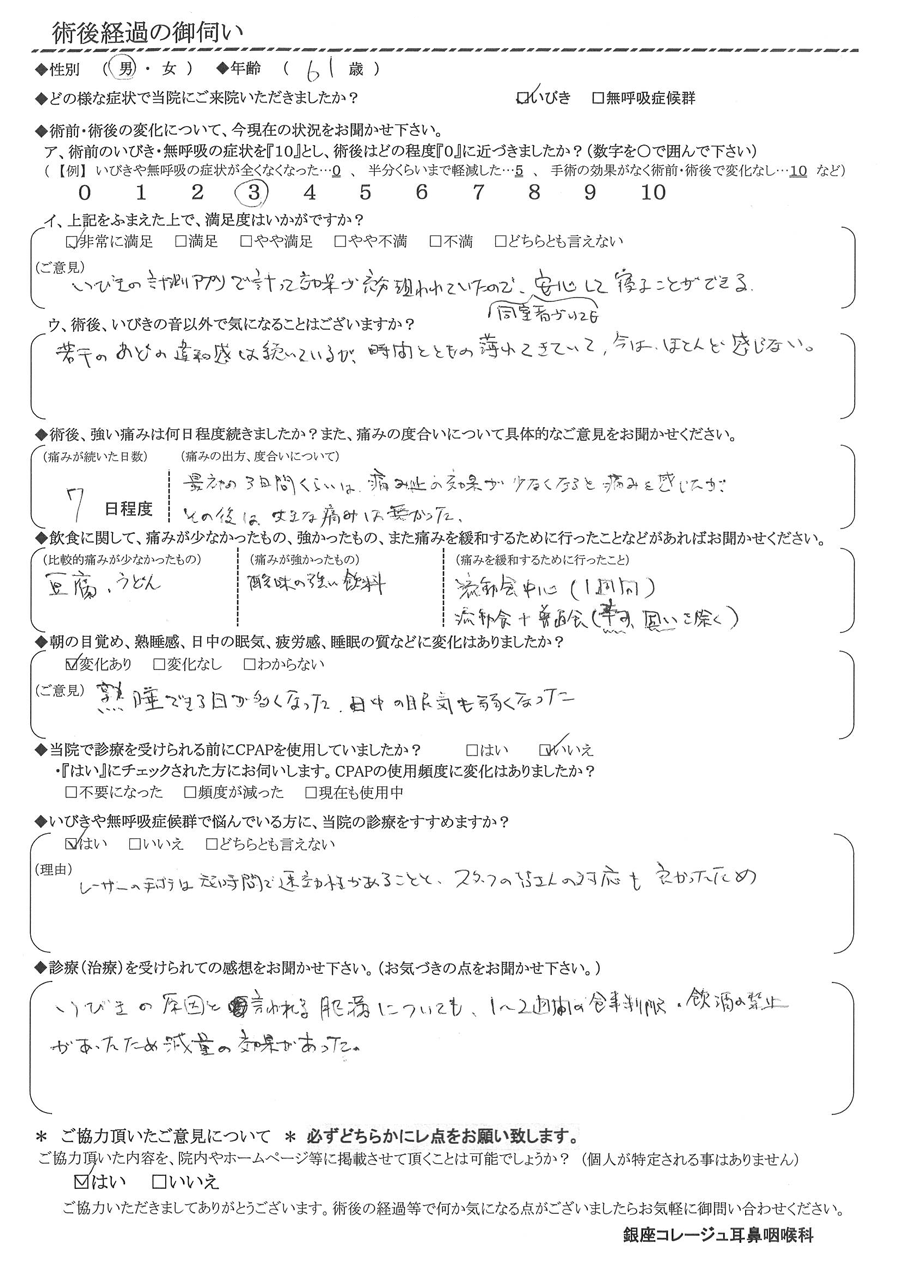 術後経過の御伺い
◆性別 （ 男 ・ 女 ） ◆年齢 （ 61 歳 ）
◆どの様な症状で当院にご来院いただきましたか？ ☑いびき □無呼吸症候群
◆術前・術後の変化について、今現在の状況をお聞かせ下さい。
ア、術前のいびき・無呼吸の症状を『10』とし、術後はどの程度『0』に近づきましたか？（数字を〇で囲んで下さい）
（【例】 いびきや無呼吸の症状が全くなくなった…0 、 半分くらいまで軽減した…5 、 手術の効果がなく術前・術後で変化なし…10 など）
0 1 2 3 4 5 6 7 8 9 10
イ、上記をふまえた上で、満足度はいかがですか？
☑非常に満足 □満足 □やや満足 □やや不満 □不満 □どちらとも言えない
（ご意見）
いびきの計測アプリで計って効果が 現われていたので、安心して寝ることができる。
同室者がいても
ウ、術後、いびきの音以外で気になることはございますか？
若干ののどの違和感は続いているが、時間とともの薄れてきていて、今は、ほとんど感じない。
◆術後、強い痛みは何日程度続きましたか？また、痛みの度合いについて具体的なご意見をお聞かせください。
（痛みが続いた日数） （痛みの出方、度合いについて）
7 日程度
最初の3日間くらいは、痛み止の効果が少なくなると痛みを感じたが、
その後は、大きな痛みは無かった。
◆飲食に関して、痛みが少なかったもの、強かったもの、また痛みを緩和するために行ったことなどがあればお聞かせください。
（比較的痛みが少なかったもの） （痛みが強かったもの） （痛みを緩和するために行ったこと）
豆腐、うどん 酸味の強い飲料 流動食中心（1週間）
流動食＋普通食（辛い、固いを除く）
◆朝の目覚め、熟睡感、日中の眠気、疲労感、睡眠の質などに変化はありましたか？
☑変化あり □変化なし □わからない
（ご意見） 熟睡できる日が多くなった、日中の眠気も弱くなった
◆当院で診療を受けられる前にCPAPを使用していましたか？ □はい ☑いいえ
・『はい』にチェックされた方にお伺いします。CPAPの使用頻度に変化はありましたか？
□不要になった □頻度が減った □現在も使用中
◆いびきや無呼吸症候群で悩んでいる方に、当院の診療をすすめますか？
☑はい □いいえ □どちらとも言えない
（理由）
レーザーの手術は短時間で速効性があることと、スタッフの皆さんの対応も良かったため
◆診療（治療）を受けられての感想をお聞かせ下さい。（お気づきの点をお聞かせ下さい。）
いびきの原因と言われる肥満についても、1～2週間の食事制限・飲酒の禁止
があったため減量の効果があった。
＊ ご協力頂いたご意見について ＊ 必ずどちらかにレ点をお願い致します。
ご協力頂いた内容を、院内やホームページ等に掲載させて頂くことは可能でしょうか？ （個人が特定される事はありません）
☑はい □いいえ
ご協力いただきましてありがとうございます。術後の経過等で何か気になる点がございましたらお気軽に御問い合わせください。
銀座コレージュ耳鼻咽喉科